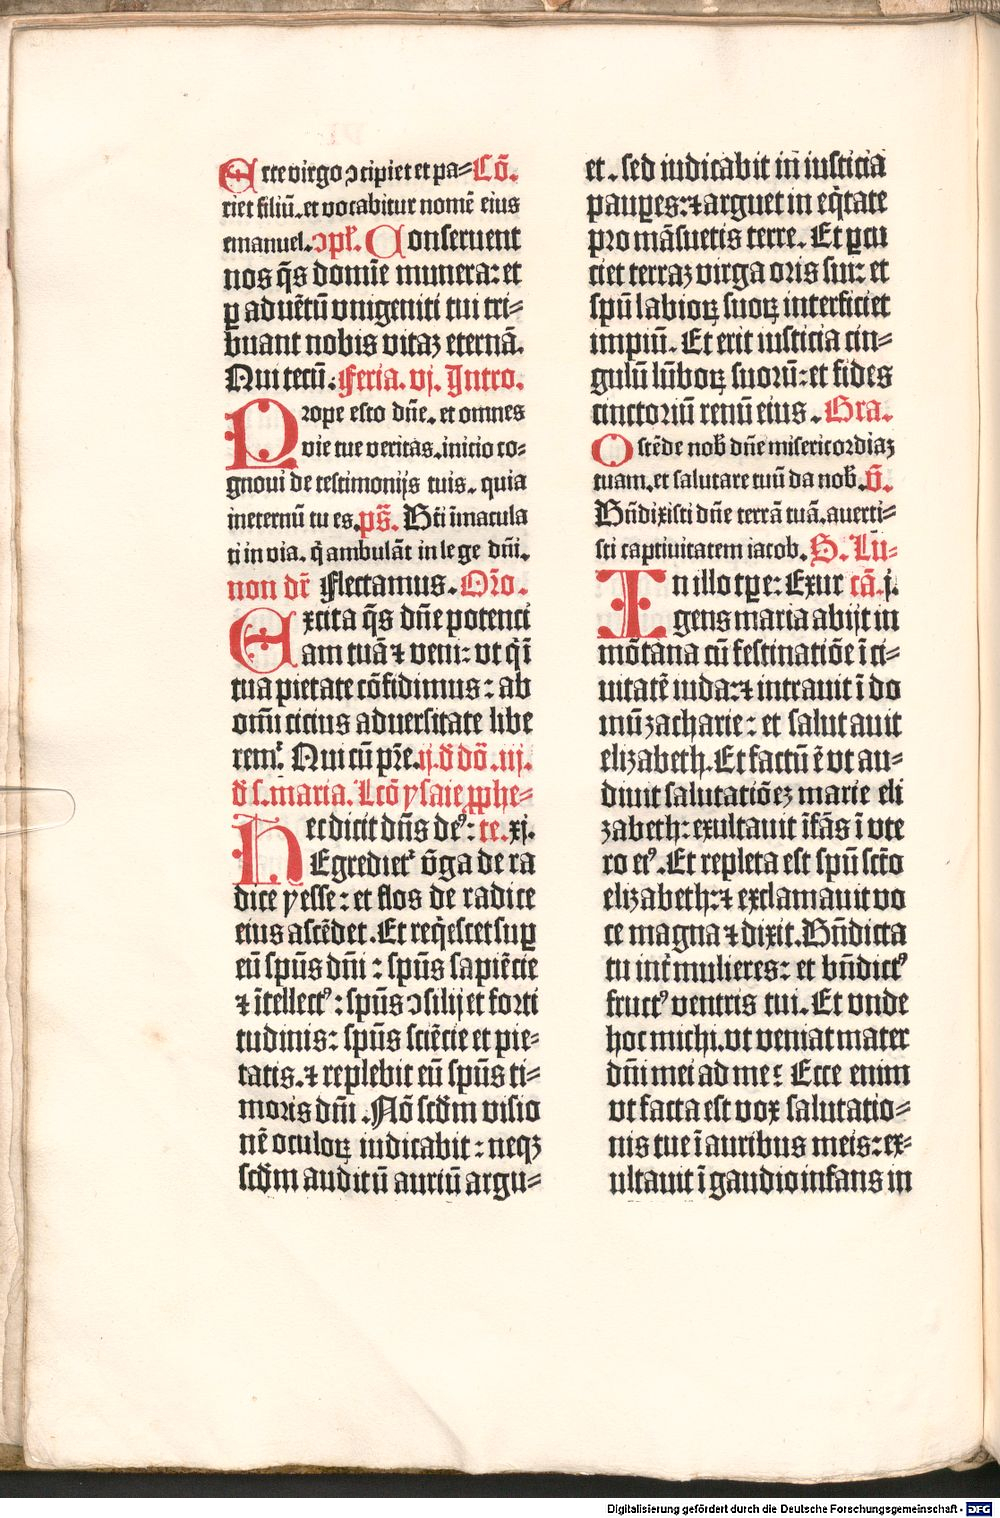 Ecce virgo ꝯcipiet et pa⸗ Cõ.
riet filiũ. et vocabitur nomẽ eius
emanuel. ꝯpl̃. Conseruent
nos q̃s domĩe munera: et
ꝑ aduẽtũ vnigeniti tui tri⸗
buant nobis vitaꝫ eternã.
Qui tecũ. Feria. vj. Intro.
Prope esto dñe. et omnes
vie tue veritas. inicio co⸗
gnoui de testimonijs tuis. quia
ineternũ tu es. ps̃. Bti ĩmacula
ti in via. q̃ ambulãt in lege dñi.
non dr̃ Flectamus. Or̃o.
Excita q̃s dñe potenci
am tuã ⁊ veni: vt qi ĩ
tua pietate cõfidimus: ab
omi cicius aduersitate libe
remͬ. Qui cũ pr̃e. ij. d̓ dõ. iij.
d̓ s. maria. Lcõ ysaie ꝓphe⸗
Hec dicit dñs deꝰ: te. xj.
Egredietͬ v̓ga de ra
dice yesse: et flos de radice
eius ascẽdet. Et req̃escet suꝑ
eũ spũs dñi: spũs sapiẽcie
⁊ ĩtellectꝰ: spũs ꝯsilij et forti
tudinis: spũs sciẽcie et pie⸗
tatis. ⁊ replebit eũ spũs ti⸗
moris dñi. Nõ scd̓m visio
nẽ oculoꝝ iudicabit: neqꝫ
scd̓m auditũ auriũ argu⸗
et. sed iudicabit iñ iusticia
pauꝑes: ⁊ arguet in eq̃tate
pro mãsuetis terre. Et ꝑcu
ciet terraꝫ virga oris sui: et
spũ labioꝝ suoꝝ interficiet
impiũ. Et erit iusticia cin⸗
gulũ lũboꝝ suorũ: et fides
cinctoriũ renũ eius. Gra.
Ostẽde nob̓ dñe misericordiaꝫ
tuam. et salutare tuũ da nob̓. v̓.
Bñdixisti dñe terrã tuã. auerti⸗
sti captiuitatem iacob. S. Lũ⸗
In illo tꝑe: Exur cã. j.
gens maria abijt in
mõtana cũ festinatiõe ĩ ci⸗
uitatẽ iuda: ⁊ intrauit ĩ do
mũ zacharie: et salutauit
elizabeth. Et factũ ẽ vt au⸗
diuit salutatiõeꝫ marie eli
zabeth: exultauit ĩfãs ĩ vte
ro eiꝰ. Et repleta est spũ sctõ
elizabeth: ⁊ exclamauit vo
ce magna ⁊ dixit. Bñdicta
tu int̓ mulieres: et bñdictꝰ
fructꝰ ventris tui. Et vnde
hoc michi. vt veniat mater
dñi mei ad me: Ecce enim
vt facta est vox salutatio⸗
nis tue ĩ auribus meis: ex⸗
ultauit ĩ gaudio infans in
Digitalisierung gefördert durch die Deutsche Forschungsgemeinschaft - DFG